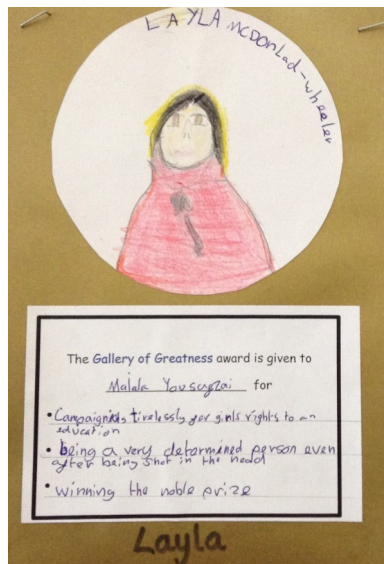 LAYLA McDonlad-wheeler
The Gallery of Greatness award is given to
Malala Yousafzai for
• Campaigning tirelessly for girls rights to an
education
• being a very determined person even
after being shot in the head
• winning the noble prize
Layla